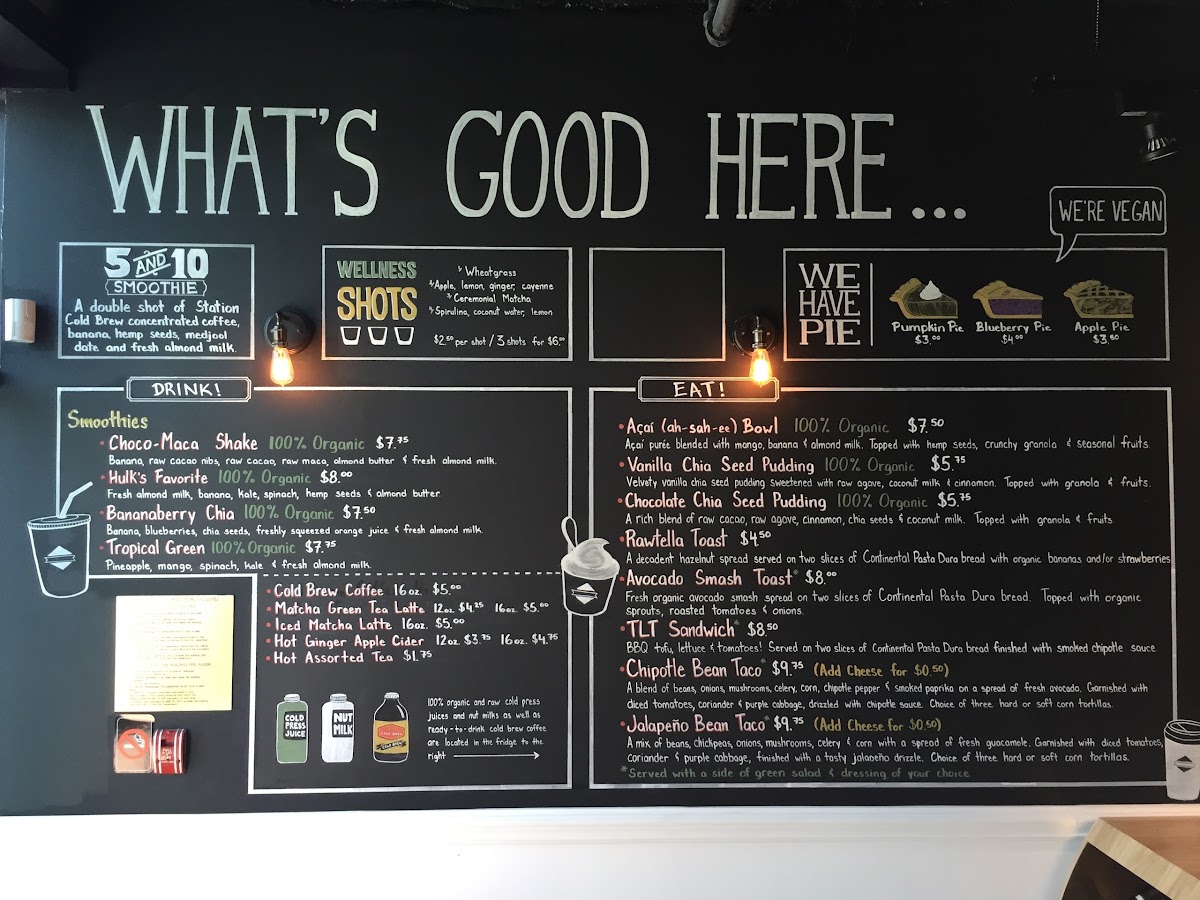 WHAT'S GOOD HERE...
WE'RE VEGAN
5 AND 10
SMOOTHIE
A double shot of Station
Cold Brew concentrated coffee,
banana, hemp seeds, medjool
date and fresh almond milk.
WELLNESS
SHOTS
Wheatgrass
Apple, lemon, ginger, cayenne
Ceremonial Matcha
Spirulina, coconut water, lemon
$2.50 per shot / 3 shots for $6.00
WE
HAVE
PIE
Pumpkin Pie
$3.00
Blueberry Pie
$4.00
Apple Pie
DRINK!
Smoothies
Choco-Maca Shake 100% Organic $7.75
Banana, raw cacao nibs, raw cacao, raw maca, almond butter & fresh almond milk.
Hulk's Favorite 100% Organic $8.00
Fresh almond milk, banana, kale, spinach, hemp seeds & almond butter
Bananaberry Chia 100% Organic $7.50
Banana, blueberries, chia seeds, freshly squeezed orange juice & fresh almond milk
Tropical Green 100% Organic $7.75
Pineapple, mango, spinach, kale & fresh almond milk.
Cold Brew Coffee 16oz. $5.00
Matcha Green Tea Latte 12oz. $4.25 16oz. $5.00
Iced Matcha Latte 16oz. $5.00
Hot Ginger Apple Cider 12oz. $3.75 16oz. $4.75
Hot Assorted Tea $1.75
COLD
PRESS
JUICE
NUT
MILK
COLD BREW
100% organic and raw cold press
juices and nut milks as well as
ready-to-drink cold brew coffee
are located in the fridge to the
right
EAT!
Açaí (ah-sah-ee) Bowl 100% Organic $7.50
Açaí purée blended with mango, banana & almond milk. Topped with hemp seeds, crunchy granola & seasonal fruits.
Vanilla Chia Seed Pudding 100% Organic $5.75
Velvety vanilla chia seed pudding sweetened with raw agave, coconut milk & cinnamon. Topped with granola & fruits.
Chocolate Chia Seed Pudding 100% Organic $5.75
A rich blend of raw cacao, raw agave, cinnamon, chia seeds & coconut milk. Topped with granola & fruits.
Rawtella Toast $4.50
A decadent hazelnut spread served on two slices of Continental Pasta Dura bread with organic bananas and/or strawberries
Avocado Smash Toast* $8.00
Fresh organic avocado smash spread on two slices of Continental Pasta Dura bread. Topped with organic
sprouts, roasted tomatoes & onions.
TLT Sandwich* $8.50
BBQ tofu, lettuce & tomatoes! Served on two slices of Continental Pasta Dura bread finished with smoked chipotle sauce
Chipotle Bean Taco* $9.75 (Add Cheese for $0.50)
A blend of beans, onions, mushrooms, celery, corn, chipotle pepper & smoked paprika on a spread of fresh avocado. Garnished with
diced tomatoes, coriander & purple cabbage, drizzled with chipotle sauce. Choice of three hard or soft corn tortillas.
Jalapeño Bean Taco* $9.75 (Add Cheese for $0.50)
A mix of beans, chickpeas, onions, mushrooms, celery & corn with a spread of fresh guacamole. Garnished with diced tomatoes,
coriander & purple cabbage, finished with a tasty jalapeño drizzle. Choice of three hard or soft corn tortillas.
*Served with a side of green salad & dressing of your choice